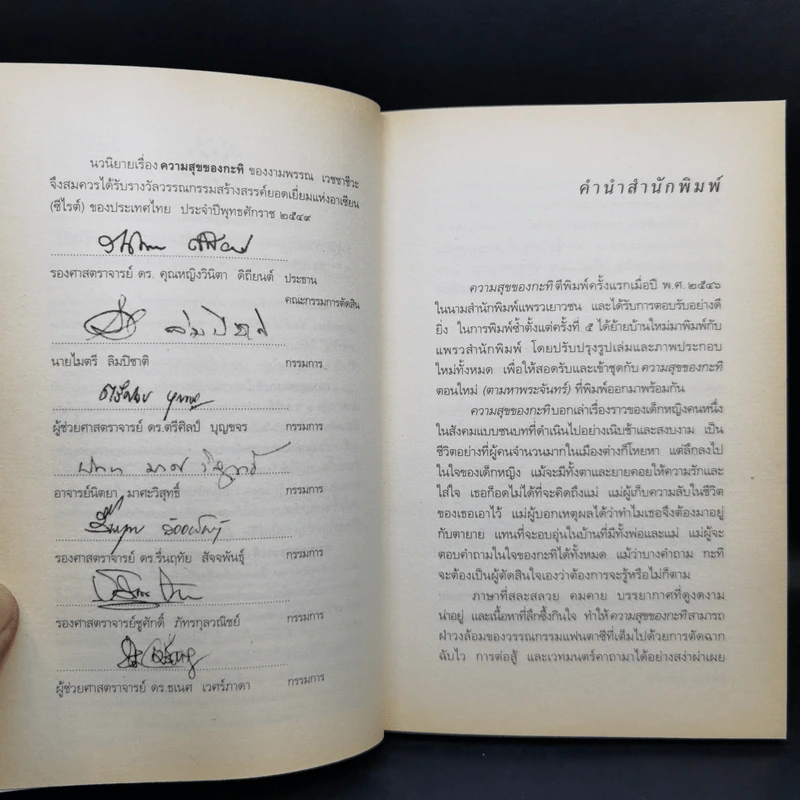 นวนิยายเรื่อง ความสุขของกะทิ ของงามพรรณ เวชชาชีวะ
จึงสมควรได้รับรางวัลวรรณกรรมสร้างสรรค์ยอดเยี่ยมแห่งอาเซียน
(ซีไรต์) ของประเทศไทย ประจำปีพุทธศักราช ๒๕๔๙
รองศาสตราจารย์ ดร. คุณหญิงวินิตา ดิถียนต์ ประธาน
คณะกรรมการตัดสิน
นายไมตรี ลิมปิชาติ กรรมการ
ผู้ช่วยศาสตราจารย์ ดร.ตรีศิลป์ บุญขจร กรรมการ
อาจารย์นิตยา มาศะวิสุทธิ์ กรรมการ
รองศาสตราจารย์ ดร.รื่นฤทัย สัจจพันธุ์ กรรมการ
รองศาสตราจารย์ชูศักดิ์ ภัทรกุลวณิชย์ กรรมการ
ผู้ช่วยศาสตราจารย์ ดร.ธเนศ เวศร์ภาดา กรรมการ
คำนำสำนักพิมพ์
ความสุขของกะทิ ตีพิมพ์ครั้งแรกเมื่อปี พ.ศ. ๒๕๔๖
ในนามสำนักพิมพ์แพรวเยาวชน และได้รับการตอบรับอย่างดี
ยิ่ง ในการพิมพ์ซ้ำตั้งแต่ครั้งที่ ๕ ได้ย้ายบ้านใหม่มาพิมพ์กับ
แพรวสำนักพิมพ์ โดยปรับปรุงรูปเล่มและภาพประกอบ
ใหม่ทั้งหมด เพื่อให้สอดรับและเข้าชุดกับ ความสุขของกะทิ
ตอนใหม่ (ตามหาพระจันทร์) ที่พิมพ์ออกมาพร้อมกัน
ความสุขของกะทิ บอกเล่าเรื่องราวของเด็กหญิงคนหนึ่ง
ในสังคมแบบชนบทที่ดำเนินไปอย่างเนิบช้าและสงบงาม เป็น
ชีวิตอย่างที่ผู้คนจำนวนมากในเมืองต่างก็โหยหา แต่ลึกลงไป
ในใจของเด็กหญิง แม้จะมีทั้งตาและยายคอยให้ความรักและ
ใส่ใจ เธอก็อดไม่ได้ที่จะคิดถึงแม่ แม่ผู้เก็บความลับในชีวิต
ของเธอเอาไว้ แม่ผู้บอกเหตุผลได้ว่าทำไมเธอจึงต้องมาอยู่
กับตายาย แทนที่จะอบอุ่นในบ้านที่มีทั้งพ่อและแม่ แม่ผู้จะ
ตอบคำถามในใจของกะทิได้ทั้งหมด แม้ว่าบางคำถาม กะทิ
จะต้องเป็นผู้ตัดสินใจเองว่าต้องการจะรู้หรือไม่ก็ตาม
ภาษาที่สละสลวย คมคาย บรรยากาศที่ดูงดงาม
น่าอยู่ และเนื้อหาที่ลึกซึ้งกินใจ ทำให้ ความสุขของกะทิ สามารถ
ฝ่าวงล้อมของวรรณกรรมแฟนตาซีที่เต็มไปด้วยการตัดฉาก
ฉับไว การต่อสู้ และเวทมนตร์คาถามาได้อย่างสง่าผ่าเผย